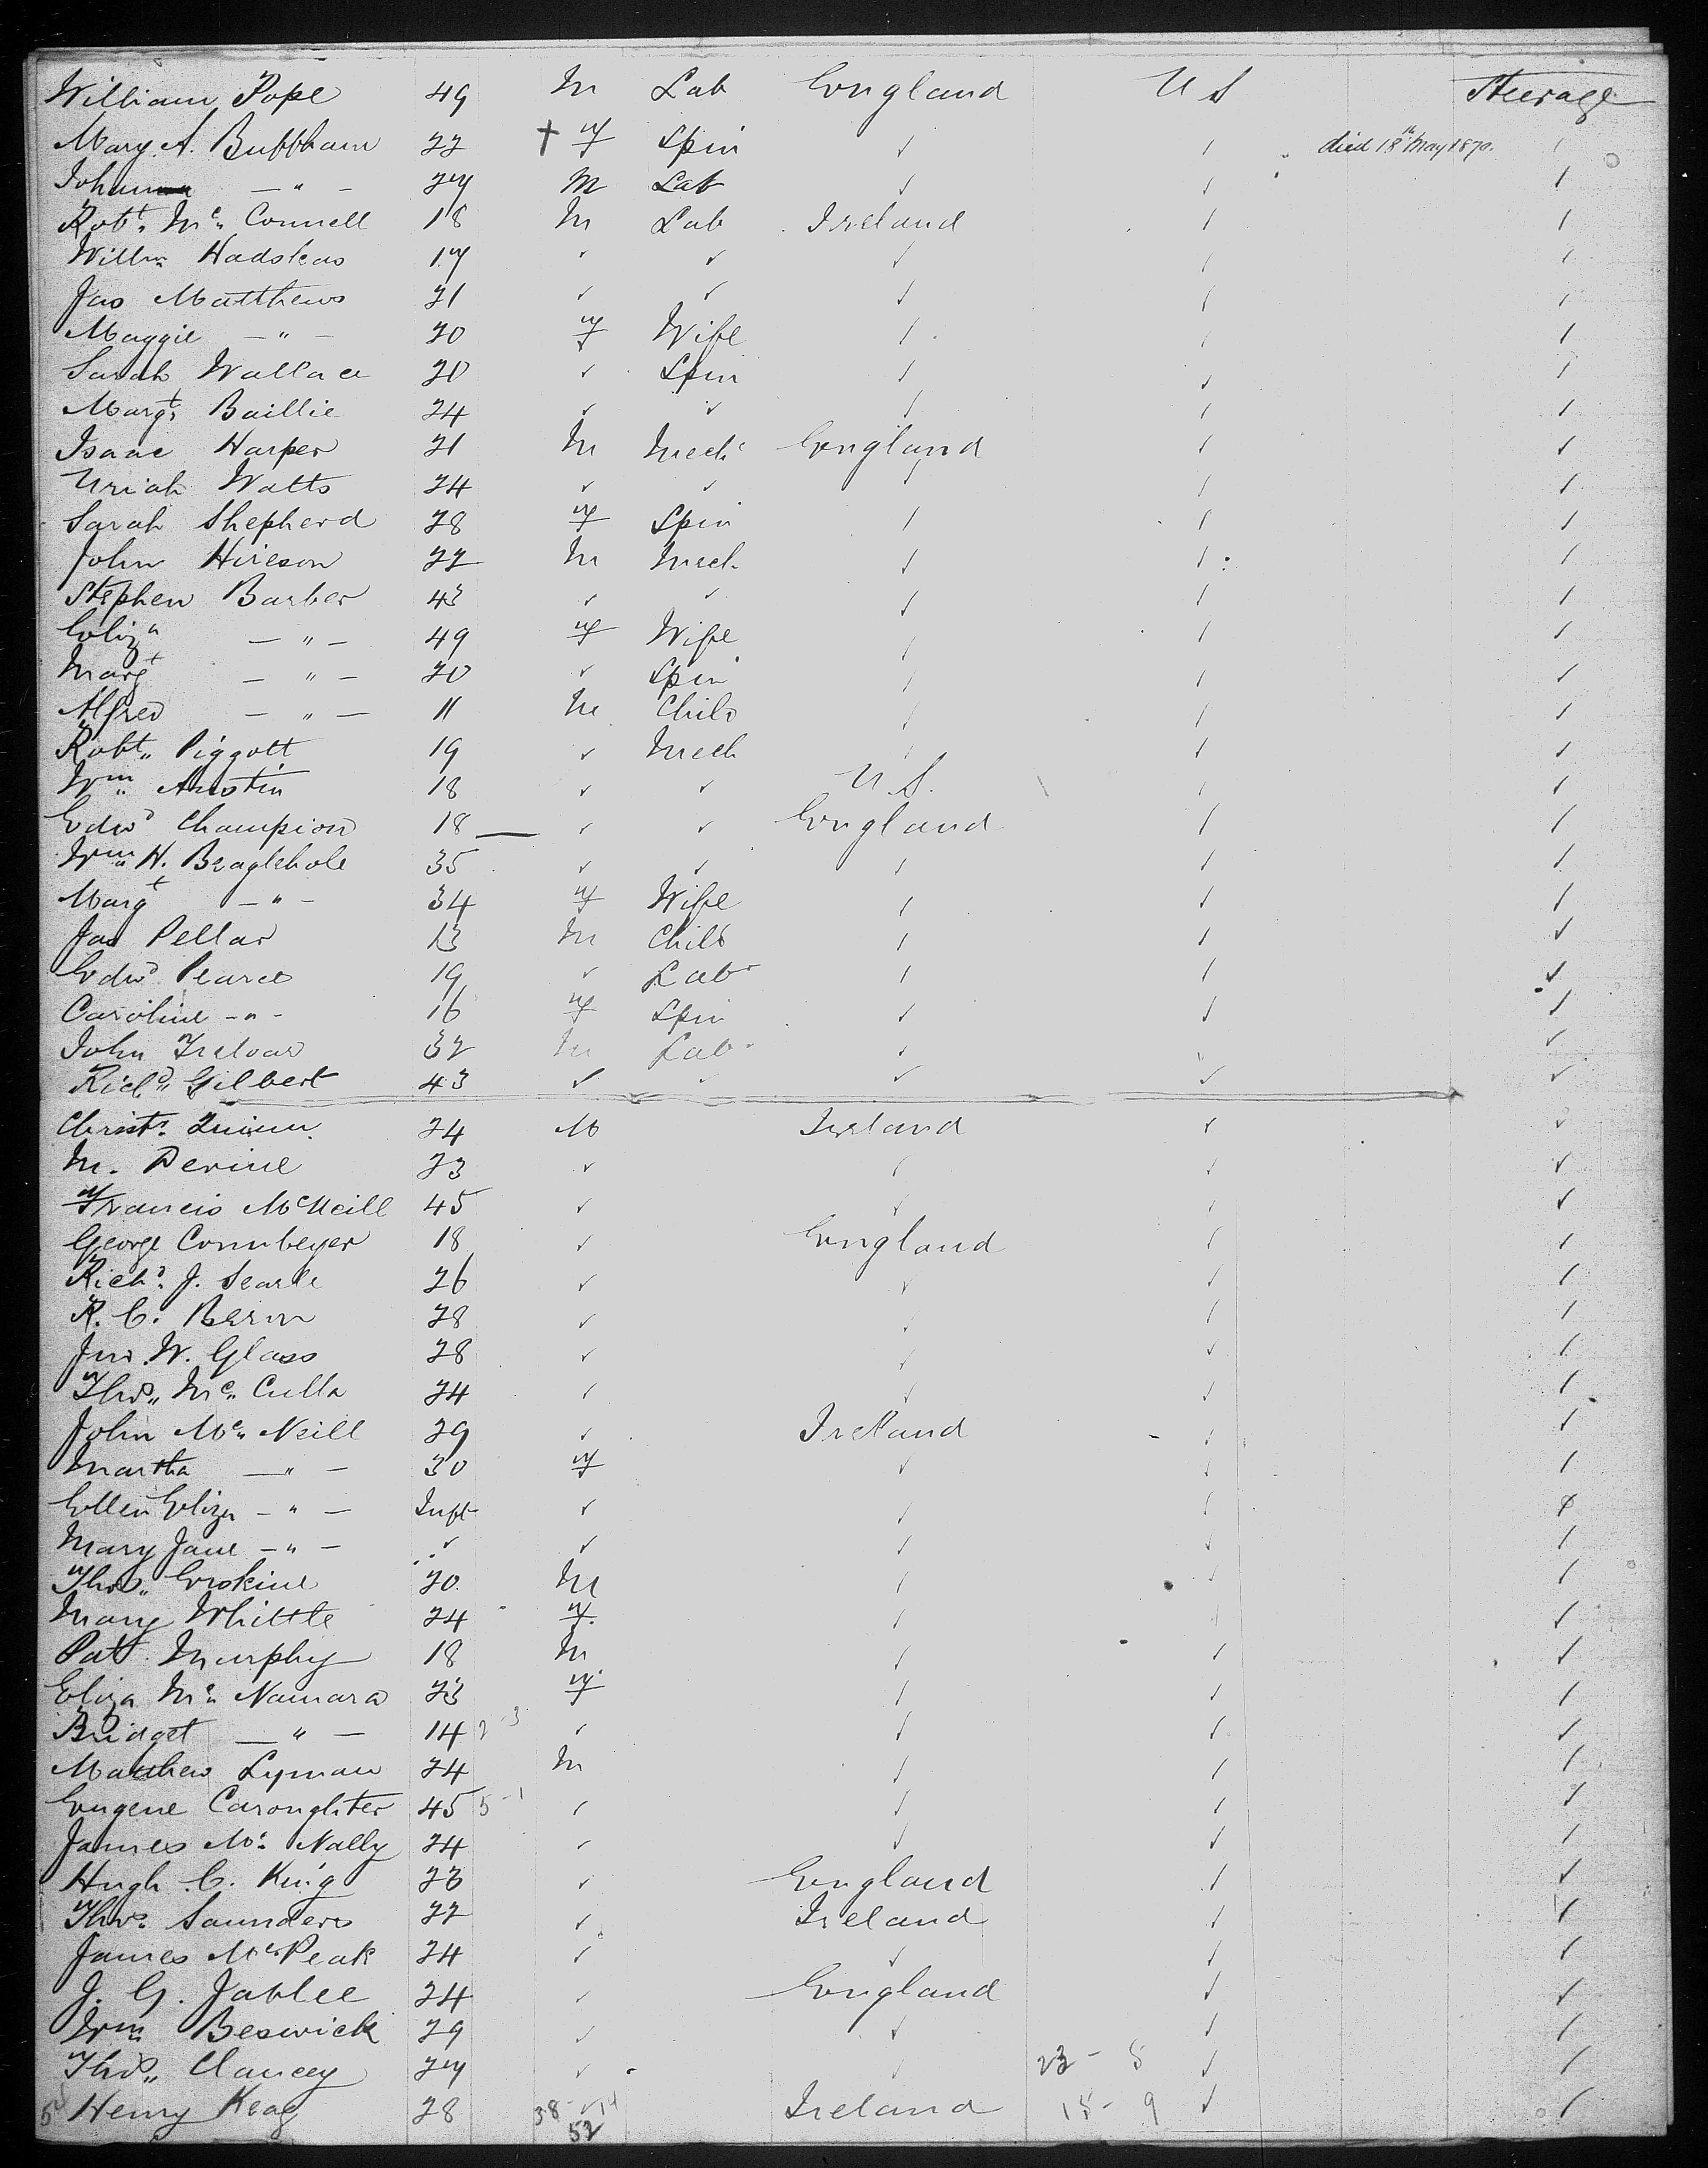 William Pope 49 M Lab England U S Steerage
Mary A. Buffham 22 † F Spin ✓ ✓ died 18th May 1870. ✓
John — " — 27 M Lab ✓ ✓ ✓
Robt. Mc. Connell 18 M Lab Ireland ✓ ✓
Willm Hadskeas 17 ✓ ✓ ✓ ✓ ✓
Jas Matthews 21 ✓ ✓ ✓ ✓ ✓
Maggie — " — 20 F Wife ✓ ✓ ✓
Sarah Wallace 20 ✓ Spin ✓ ✓ ✓
Margt. Baillie 24 ✓ ✓ ✓ ✓ ✓
Isaac Harper 21 M Mech England ✓ ✓
Uriah Watts 24 ✓ ✓ ✓ ✓ ✓
Sarah Shepherd 28 F Spin ✓ ✓ ✓
John Hireson 22 M Mech. ✓ ✓ ✓
Stephen Barber 43 ✓ ✓ ✓ ✓ ✓
Eliza — " — 49 F Wife ✓ ✓ ✓
Margt — " — 20 ✓ Spin ✓ ✓ ✓
Alfred — " — 11 M Child ✓ ✓ ✓
Robt. Piggott 19 ✓ Mech ✓ ✓ ✓
Wm. Austin 18 ✓ ✓ U.S. ✓ ✓
Edwd Champion 18 ✓ ✓ England ✓ ✓
Wm. H. Beaglehole 35 ✓ ✓ ✓ ✓ ✓
Margt — " — 34 F Wife ✓ ✓ ✓
Jas Pellar 13 M Child ✓ ✓ ✓
Edwd Pearce 19 ✓ Lab ✓ ✓ ✓
Caroline — " — 16 F Spin ✓ ✓ ✓
John Treloar 32 M Lab ✓ ✓ ✓
Richd. Gilbert 43 ✓ ✓ ✓ ✓ ✓
Christr. Quinn 24 M Ireland ✓ ✓
M. Devine 23 ✓ ✓ ✓ ✓
Francis McNeill 45 ✓ ✓ ✓ ✓
George Cornbeyer 18 ✓ England ✓ ✓
Richd. J. Searle 26 ✓ ✓ ✓ ✓
R. C. 28 ✓ ✓ ✓ ✓
Jno. W. Glass 28 ✓ ✓ ✓ ✓
Thos. Mc. Culla 24 ✓ ✓ ✓ ✓
John Mc. Neill 29 ✓ Ireland ✓ ✓
Martha — " — 30 F ✓ ✓ ✓
Ellen Eliza — " — Inft ✓ ✓ ✓ ✓
Mary Jane — " — ✓ ✓ ✓ ✓ ✓
Thos. Erskine 20 M ✓ ✓ ✓
Mary Whittle 24 F ✓ ✓ ✓
Pat Murphy 18 M ✓ ✓ ✓
Eliza Mc. Namara 23 F ✓ ✓ ✓
Bridget — " — 14 2 - 3 ✓ ✓ ✓ ✓
Matthew Lyman 24 M ✓ ✓ ✓
Eugene Caroughter 45 5 - 1 ✓ ✓ ✓ ✓
James Mc. Nally 24 ✓ ✓ ✓ ✓
Hugh C. King 23 ✓ England ✓ ✓
Thos. Saunders 22 ✓ Ireland ✓ ✓
James Mc Peak 24 ✓ ✓ ✓ ✓
J. G. Jablee 24 ✓ England ✓ ✓
Wm. Beswick 29 ✓ ✓ ✓ ✓
Thos. Clancey 27 ✓ ✓ 23 - 5 ✓ ✓
Henry Keag 28 38 - ✓ 14 Ireland 15 - 9 ✓ ✓
52